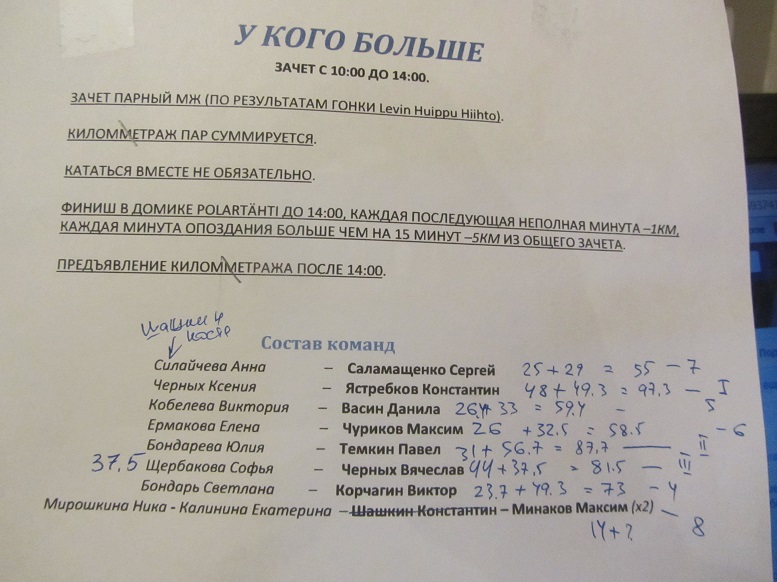 У КОГО БОЛЬШЕ
ЗАЧЕТ С 10:00 ДО 14:00.
ЗАЧЕТ ПАРНЫЙ МЖ (ПО РЕЗУЛЬТАТАМ ГОНКИ Levin Huippu Hiihto).
КИЛОММЕТРАЖ ПАР СУММИРУЕТСЯ.
КАТАТЬСЯ ВМЕСТЕ НЕ ОБЯЗАТЕЛЬНО.
ФИНИШ В ДОМИКЕ POLARTÄHTI ДО 14:00, КАЖДАЯ ПОСЛЕДУЮЩАЯ НЕПОЛНАЯ МИНУТА –1КМ,
КАЖДАЯ МИНУТА ОПОЗДАНИЯ БОЛЬШЕ ЧЕМ НА 15 МИНУТ –5КМ ИЗ ОБЩЕГО ЗАЧЕТА.
ПРЕДЪЯВЛЕНИЕ КИЛОММЕТРАЖА ПОСЛЕ 14:00.
Состав команд
Силайчева Анна – Саламащенко Сергей 25 + 29 = 55 – 7
Черных Ксения – Ястребков Константин 48 + 49.3 = 97,3 – I
Кобелева Виктория – Васин Данила 26,4 + 33 = 59,4 – 5
Ермакова Елена – Чуриков Максим 26 + 32.5 = 58.5 – 6
Бондарева Юлия – Темкин Павел 31 + 56.7 = 87,7 – II
37,5 Щербакова Софья – Черных Вячеслав 44 + 37,5 = 81.5 – III
Бондарь Светлана – Корчагин Виктор 23.7 + 49.3 = 73 – 4
Мирошкина Ника - Калинина Екатерина – Шашкин Константин – Минаков Максим (х2) – 8
14 + ?